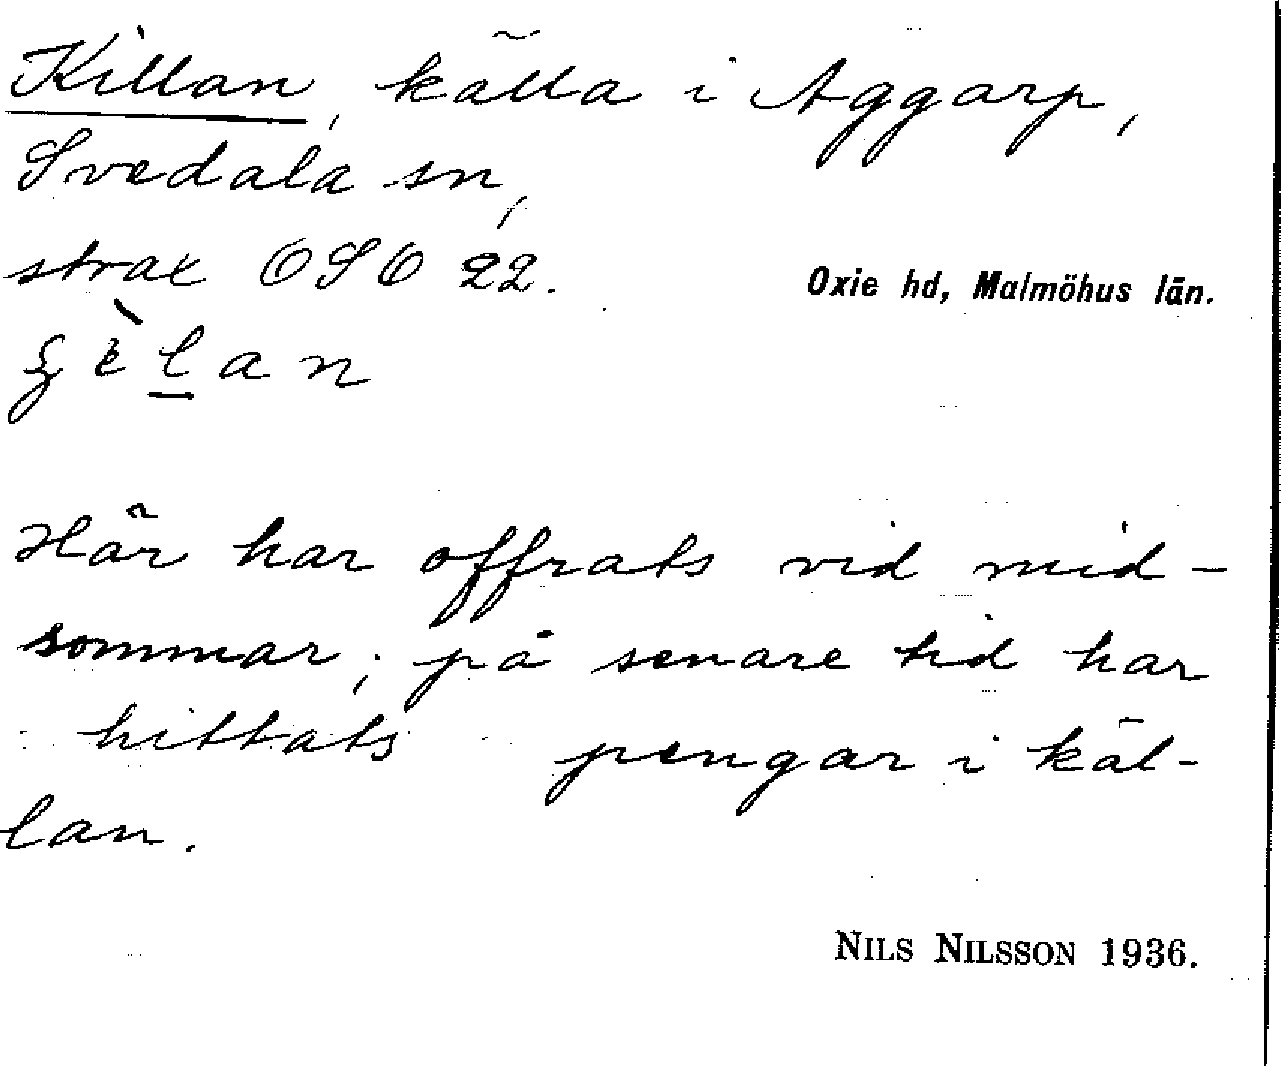 Killan, källa i Aggarp,
Svedala sn,
strax OSO 22.
Oxie hd, Malmöhus län.
Här har offrats vid mid-
sommar; på senare tid har
hittats pengar i käl-
lan.
NILS NILSSON 1936.